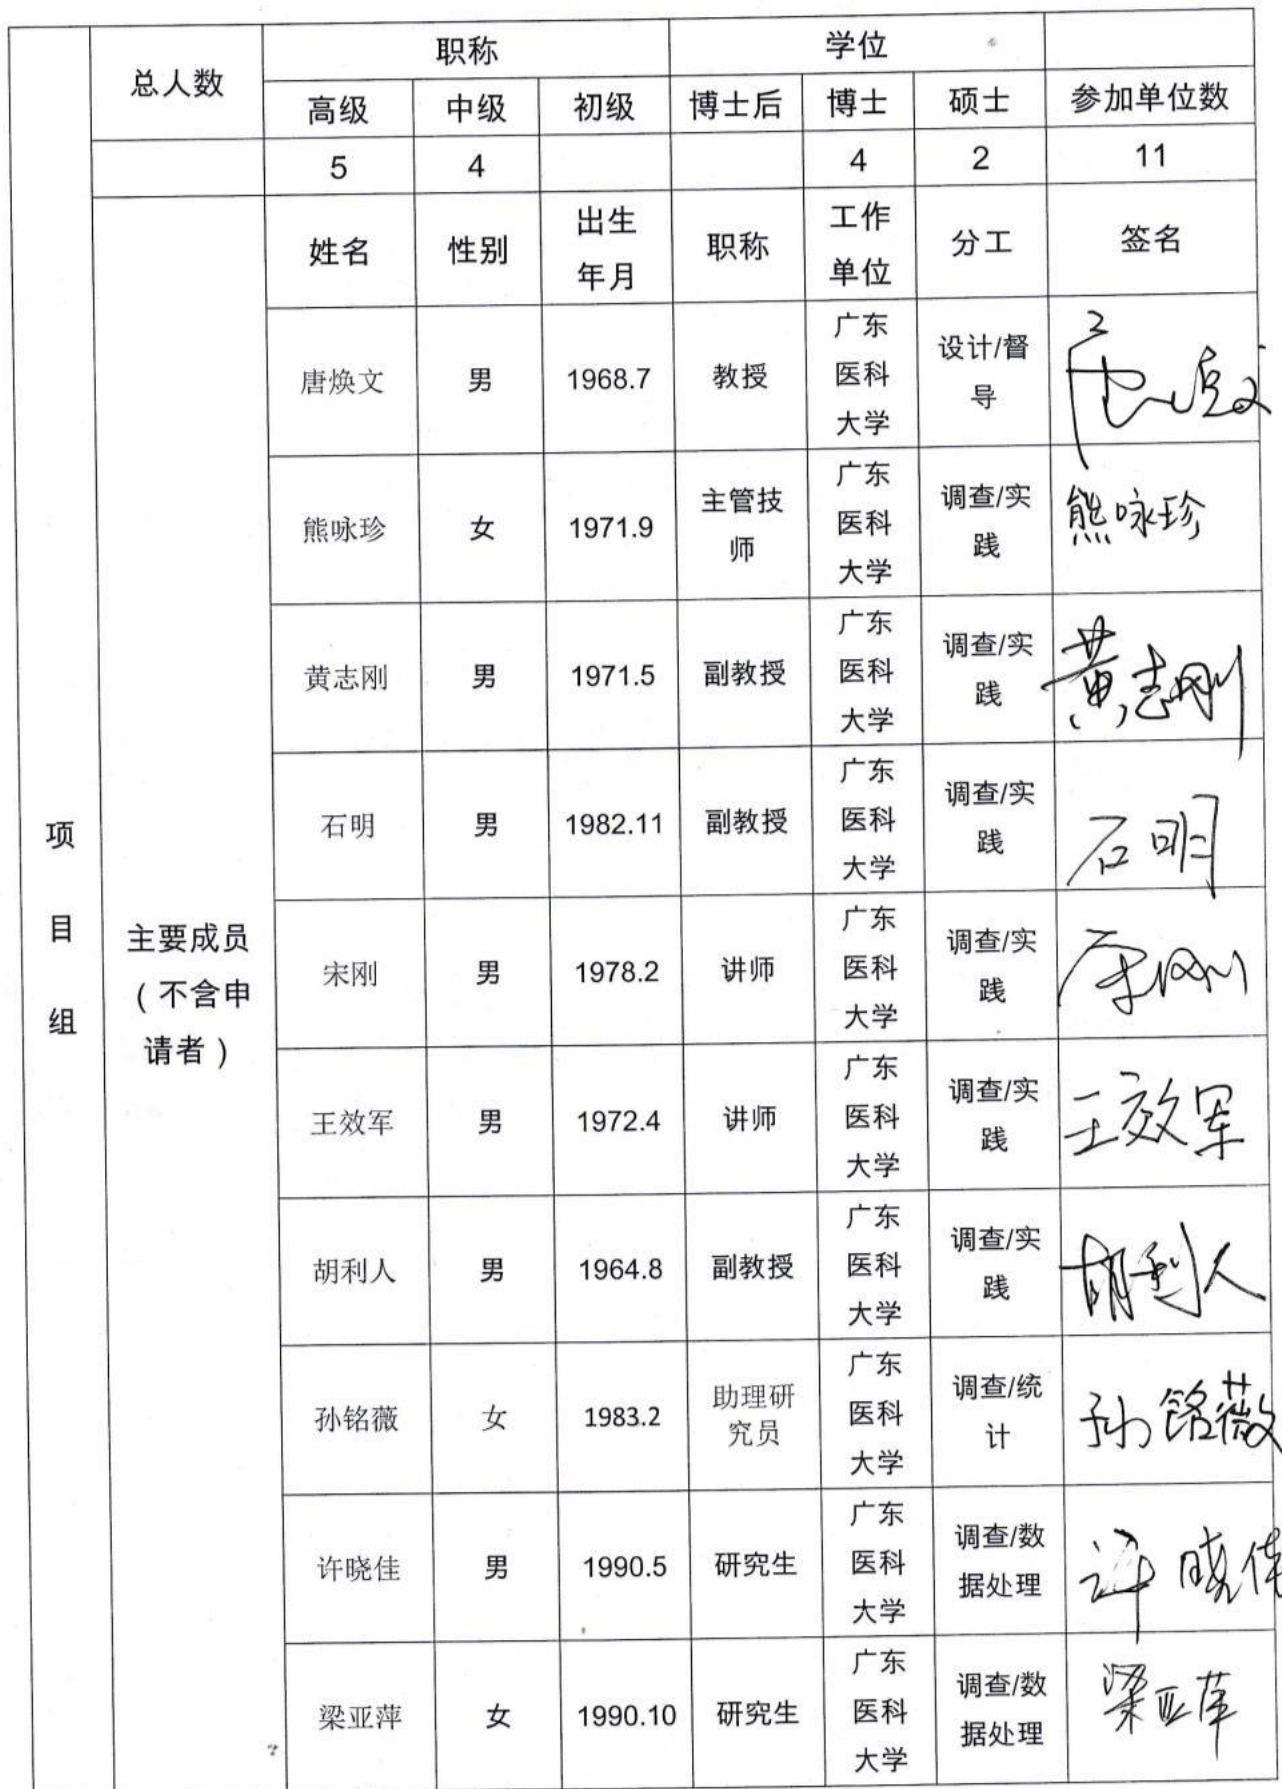 职称
学位
总人数
高级
中级
初级
博士后
博士
硕士
参加单位数
5
4
4
2
11
项
目
组
主要成员
（不含申
请者）
姓名
性别
出生
年月
职称
工作
单位
分工
签名
唐焕文
男
1968.7
教授
广东
医科
大学
设计/督
导
熊咏珍
女
1971.9
主管技
师
广东
医科
大学
调查/实
践
熊咏珍
黄志刚
男
1971.5
副教授
广东
医科
大学
调查/实
践
黄志刚
石明
男
1982.11
副教授
广东
医科
大学
调查/实
践
石明
宋刚
男
1978.2
讲师
广东
医科
大学
调查/实
践
宋刚
王效军
男
1972.4
讲师
广东
医科
大学
调查/实
践
王效军
胡利人
男
1964.8
副教授
广东
医科
大学
调查/实
践
胡利人
孙铭薇
女
1983.2
助理研
究员
广东
医科
大学
调查/统
计
孙铭薇
许晓佳
男
1990.5
研究生
广东
医科
大学
调查/数
据处理
许晓佳
梁亚萍
女
1990.10
研究生
广东
医科
大学
调查/数
据处理
梁亚萍